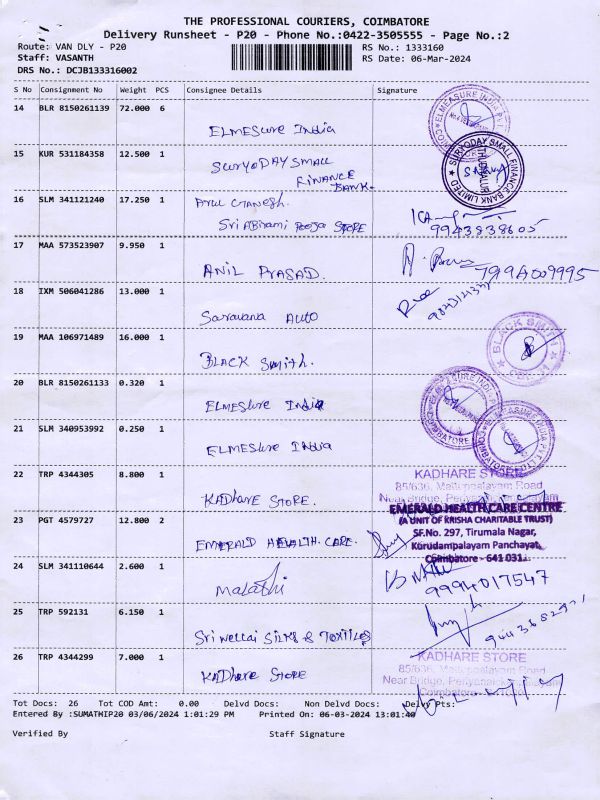 THE PROFESSIONAL COURIERS, COIMBATORE
Delivery Runsheet - P20 - Phone No.:0422-3505555 - Page No.:2
Route: VAN DLY - P20 RS No.: 1333160
Staff: VASANTH RS Date: 06-Mar-2024
DRS No.: DCJB133316002
S No Consignment No Weight PCS Consignee Details Signature
14 BLR 8150261139 72.000 6
ELMESure India
15 KUR 531184358 12.500 1
SURYODAY SMALL
FINANCE
BANK.
SURYODAY SMALL FINANCE BANK LIMITED
16 SLM 341121240 17.250 1 Arul Ganesh.
Sri ABirami Pooja STORE
9943838605
17 MAA 573523907 9.950 1
ANIL PRASAD.
7994009995
18 IXM 506041286 13.000 1
Saravana Auto
19 MAA 106971489 16.000 1
BLACK Smith.
BLACK SMITH
20 BLR 8150261133 0.320 1
ELMESure India
21 SLM 340953992 0.250 1
ELMESure India
22 TRP 4344305 8.800 1
KADhare STORE.
KADHARE STORE
85/636, Mettupalayam Road
Near Bridge, Periyanaickenpalayam
23 PGT 4579727 12.800 2
EMERALD HEALTH. CARE.
EMERALD HEALTH CARE CENTRE
(A UNIT OF KRISHA CHARITABLE TRUST)
SF.No. 297, Tirumala Nagar,
Kurudampalayam Panchayat,
Coimbatore - 641 031.
24 SLM 341110644 2.600 1
Malathi
9994017547
25 TRP 592131 6.150 1
Sri Wellai Silks & Textiles
26 TRP 4344299 7.000 1
KADhare STORE
KADHARE STORE
85/636, Mettupalayam Road
Near Bridge, Periyanaickenpalayam
Coimbatore
Tot Docs: 26 Tot COD Amt: 0.00 Delvd Docs: Non Delvd Docs: Delvy Pts:
Entered By :SUMATHIP20 03/06/2024 1:01:29 PM Printed On: 06-03-2024 13:01:40
Verified By Staff Signature